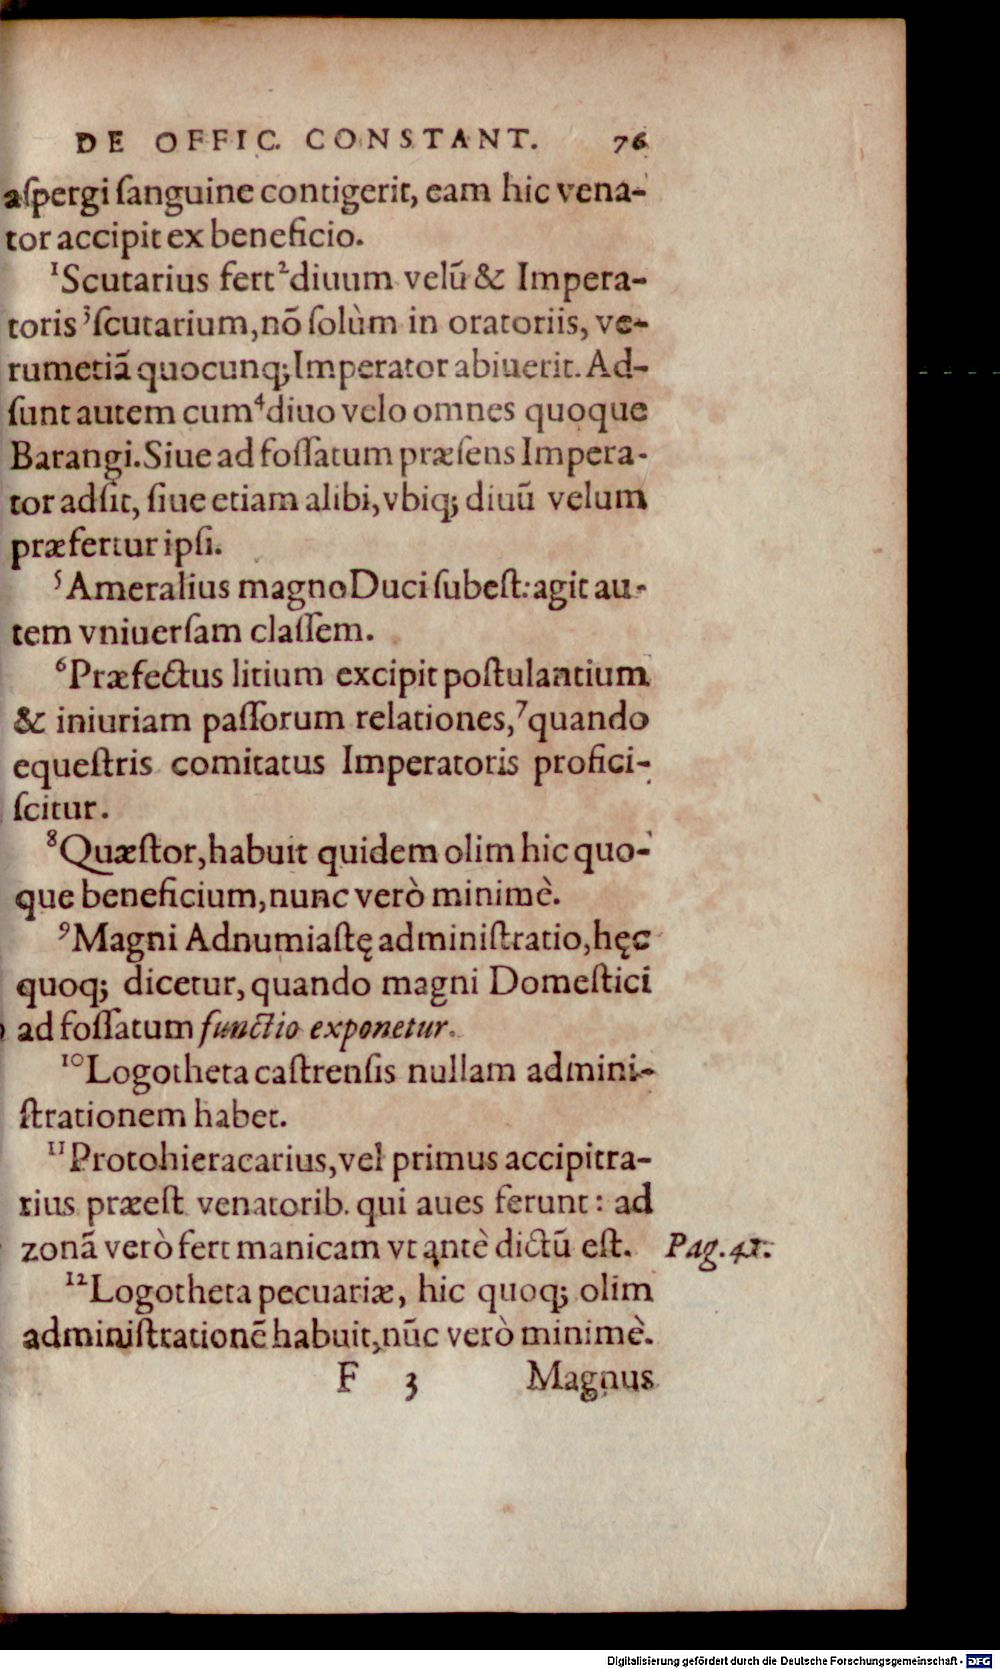 DE OFFIC. CONSTANT. 76
aſpergi ſanguine contigerit, eam hic vena-
tor accipit ex beneficio.
¹Scutarius fert ²diuum velū & Impera-
toris ³ſcutarium, nō ſolùm in oratoriis, ve-
rumetiā quocunq; Imperator abiuerit. Ad-
ſunt autem cum ⁴diuo velo omnes quoque
Barangi. Siue ad foſſatum præſens Impera-
tor adſit, ſiue etiam alibi, vbiq; diuū velum
præfertur ipſi.
⁵Ameralius magno Duci ſubeſt: agit au-
tem vniuerſam claſſem.
⁶Præfectus litium excipit poſtulantium
& iniuriam paſſorum relationes, ⁷quando
equeſtris comitatus Imperatoris profici-
ſcitur.
⁸Quæſtor, habuit quidem olim hic quo-
que beneficium, nunc verò minimè.
⁹Magni Adnumiaſtę adminiſtratio, hęc
quoq; dicetur, quando magni Domeſtici
ad foſſatum functio exponetur.
¹⁰Logotheta caſtrenſis nullam admini-
ſtrationem habet.
¹¹Protohieracarius, vel primus accipitra-
rius præeſt venatorib. qui aues ferunt: ad
zonā verò fert manicam vt antè dictū eſt. Pag. 41.
¹²Logotheta pecuariæ, hic quoq; olim
adminiſtrationē habuit, nūc verò minimè.
F 3 Magnus
Digitalisierung gefördert durch die Deutsche Forschungsgemeinschaft - DFG